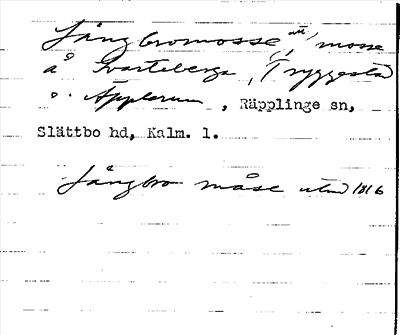 Långbromosse, mosse
å Svarteberga, Tryggestad
o. Äpplerum, Räpplinge sn,
Slättbo hd, Kalm. l.
Långbro måse utmd 1816